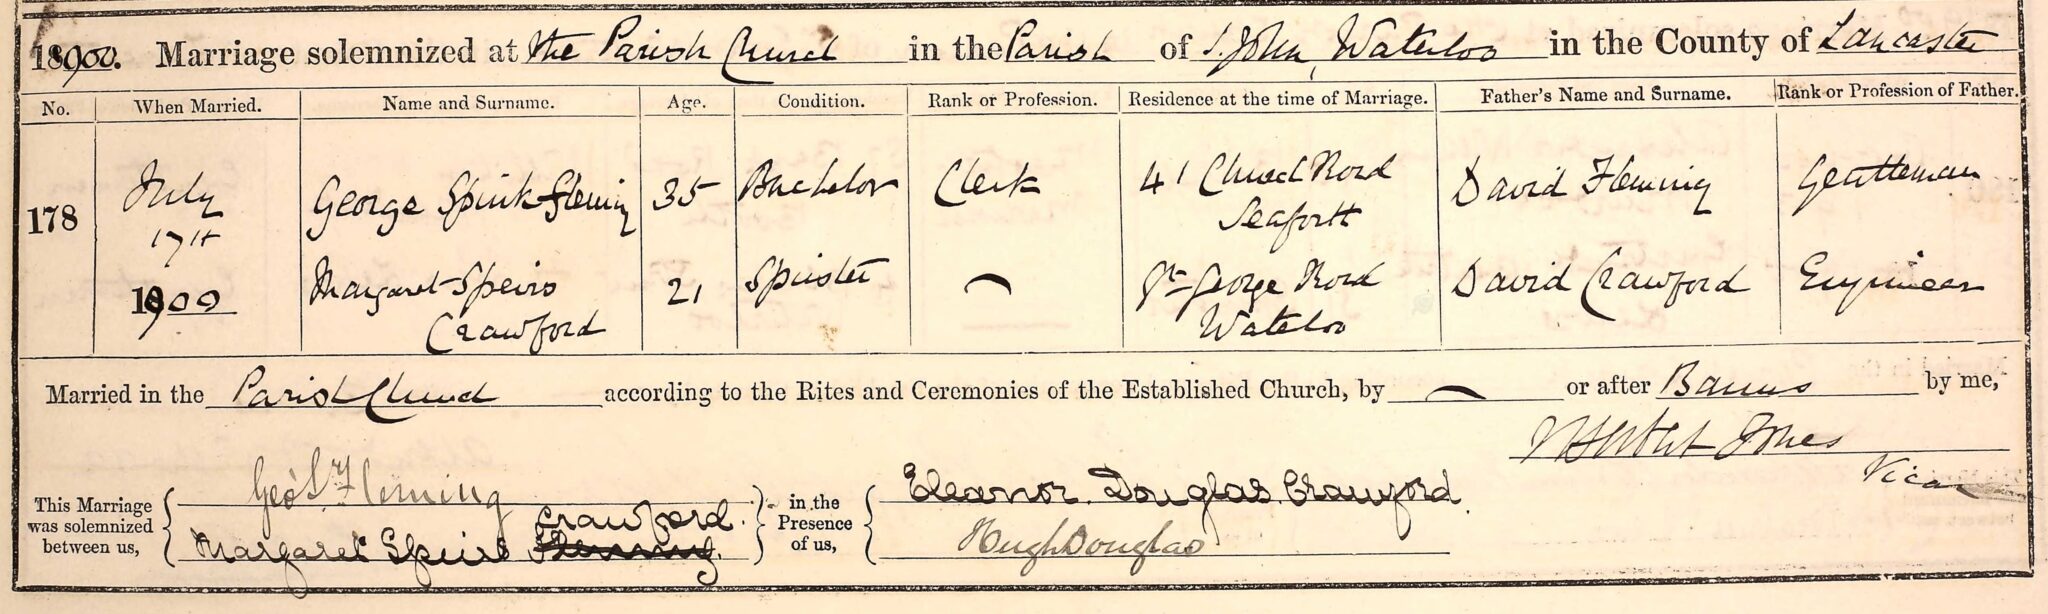 1900. Marriage solemnized at the Parish Church in the Parish of S. John, Waterloo in the County of Lancaster
No. When Married. Name and Surname. Age. Condition. Rank or Profession. Residence at the time of Marriage. Father's Name and Surname. Rank or Profession of Father.
178 July 17th 1900 George Spink Fleming 35 Bachelor Clerk 41 Church Road Seaforth David Fleming Gentleman
Margaret Speirs Crawford 21 Spinster — St George Road Waterloo David Crawford Engineer
Married in the Parish Church according to the Rites and Ceremonies of the Established Church, by — or after Banns by me,
Herbert Jones
Vicar
This Marriage was solemnized between us, Geo S Fleming in the Presence of us, Eleanor Douglas Crawford
Margaret Speirs Fleming Crawford. Hugh Douglas